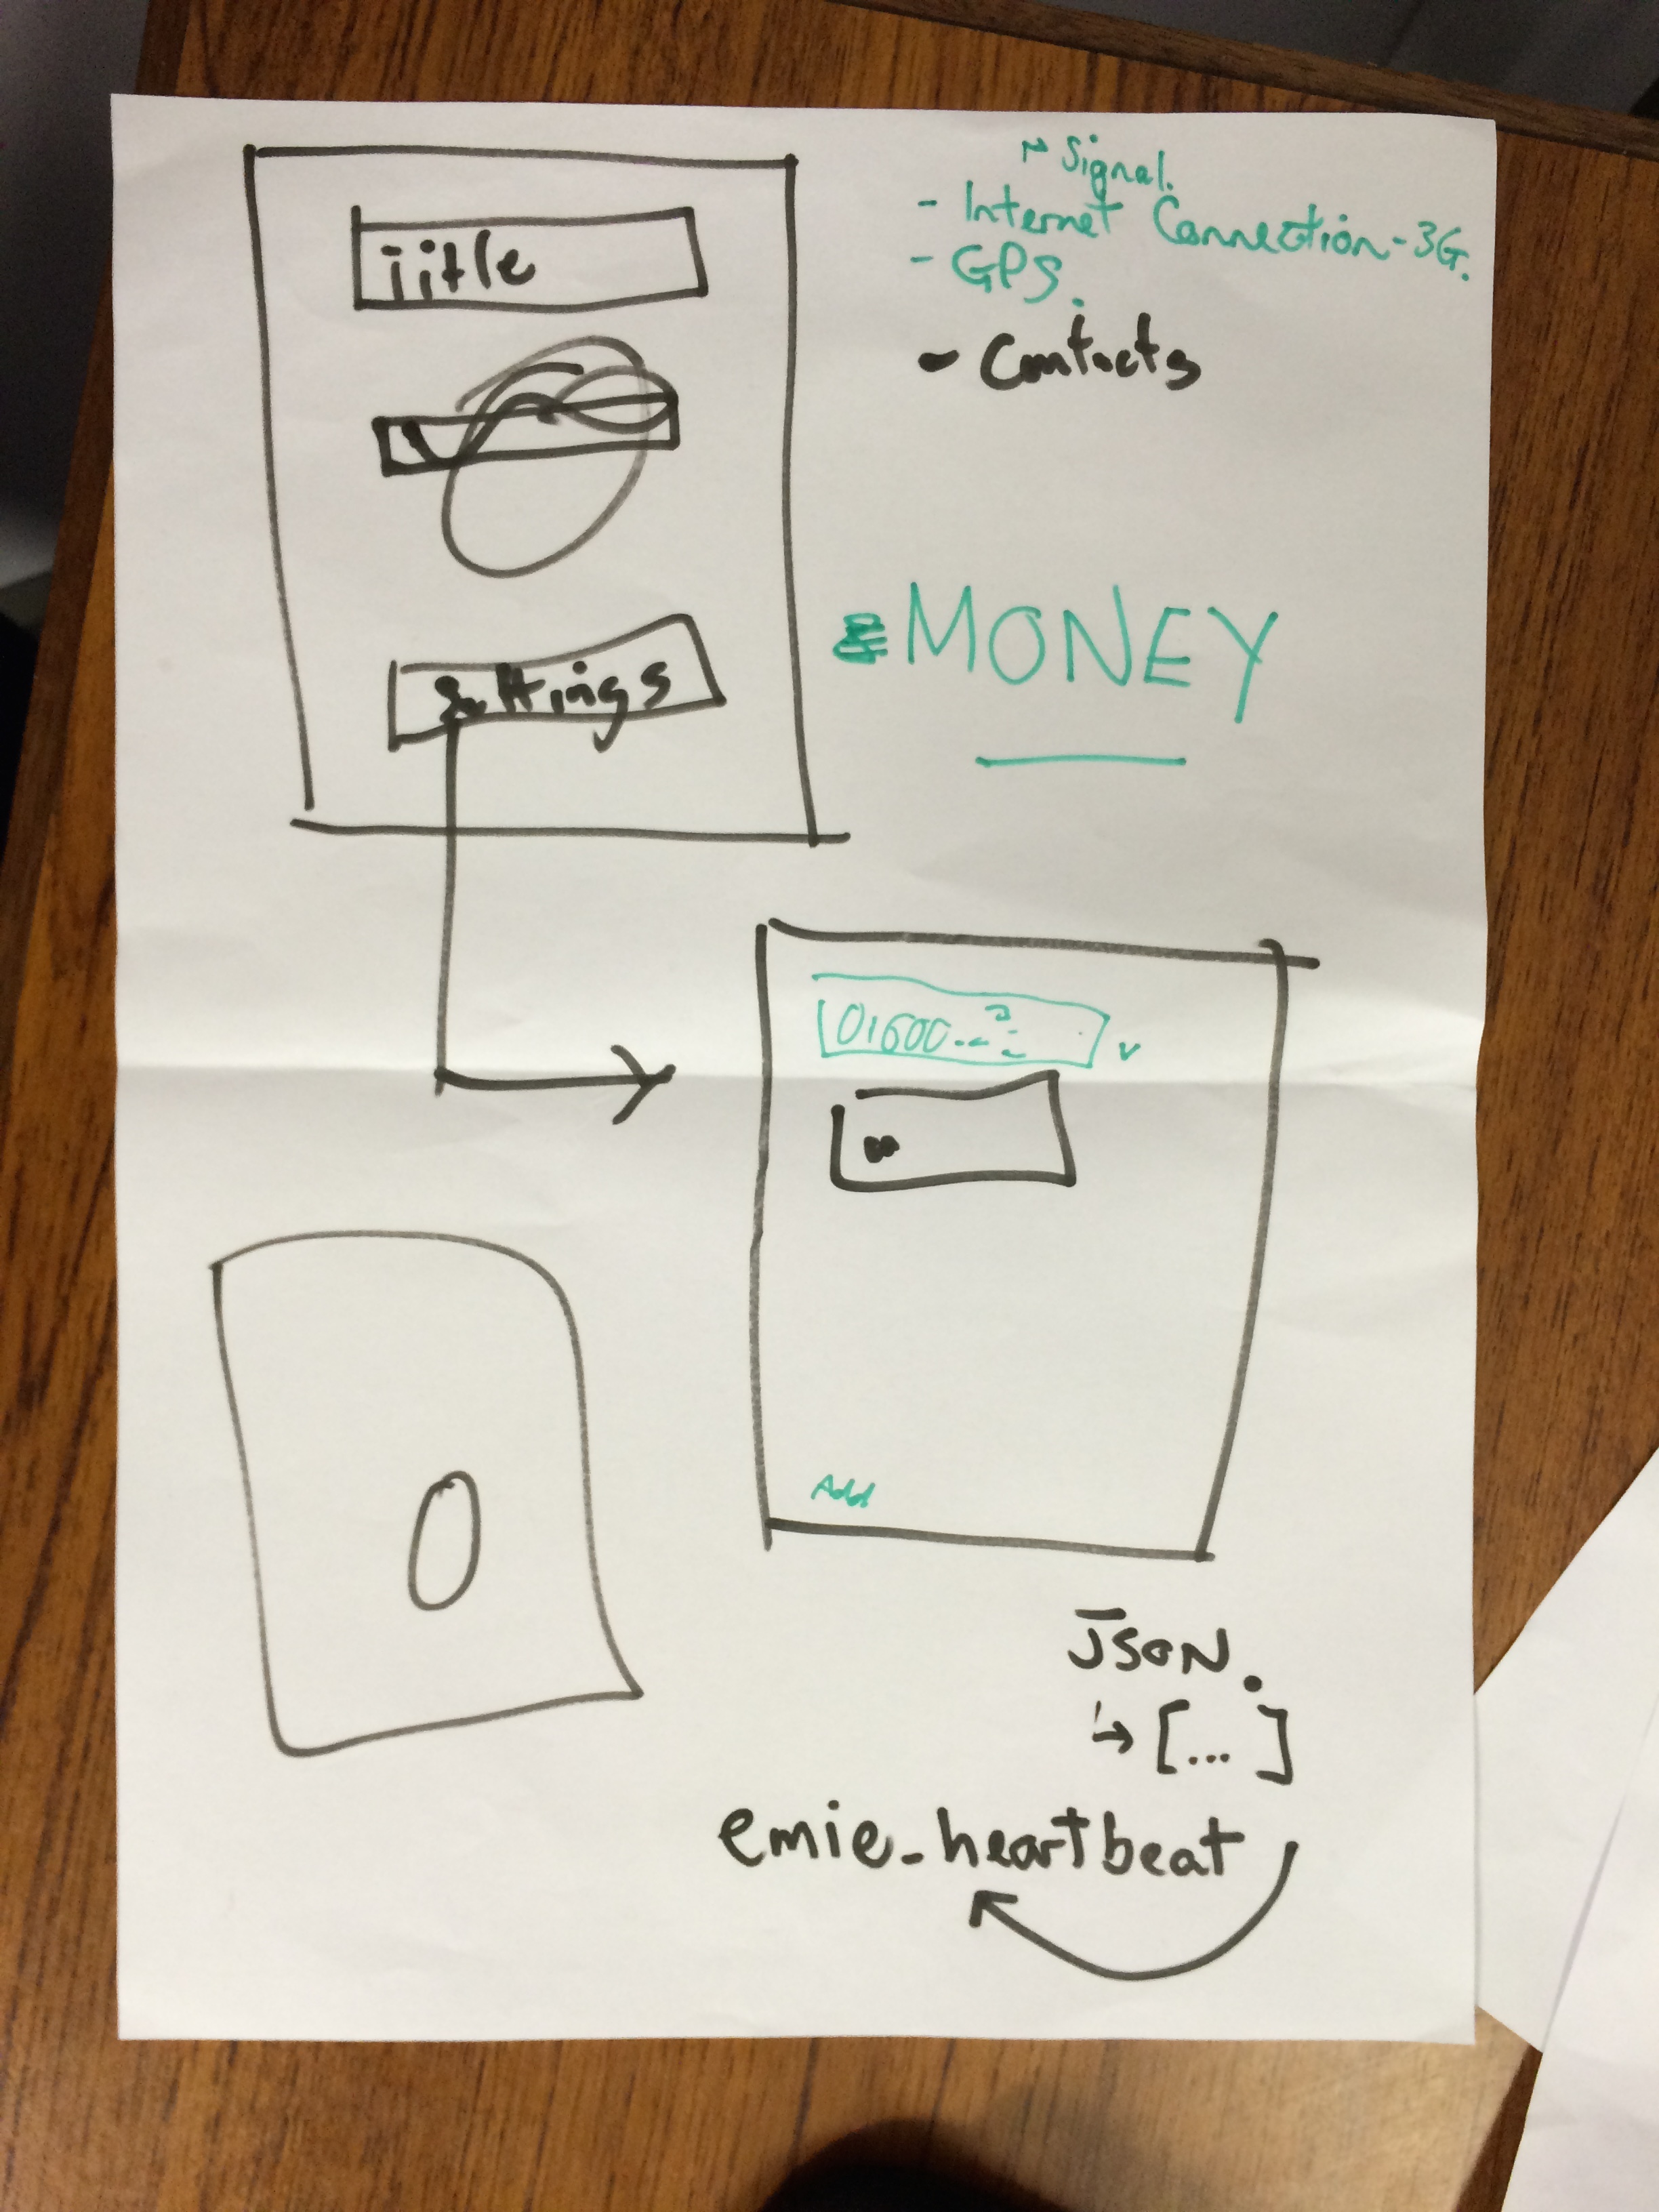 Title
Settings
Signal.
- Internet Connection - 3G.
- GPS.
- Contacts
MONEY
01600
Add
JSON.
↳ [...]
emie_heartbeat